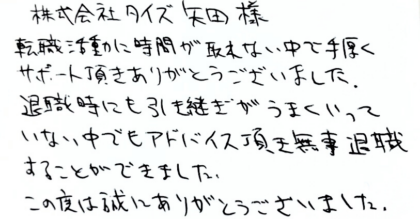 株式会社タイズ 矢田様
転職活動に時間が取れない中で手厚く
サポート頂きありがとうございました.
退職時にも引き継ぎがうまくいって
いない中でもアドバイス頂き無事退職
することができました.
この度は誠にありがとうございました.